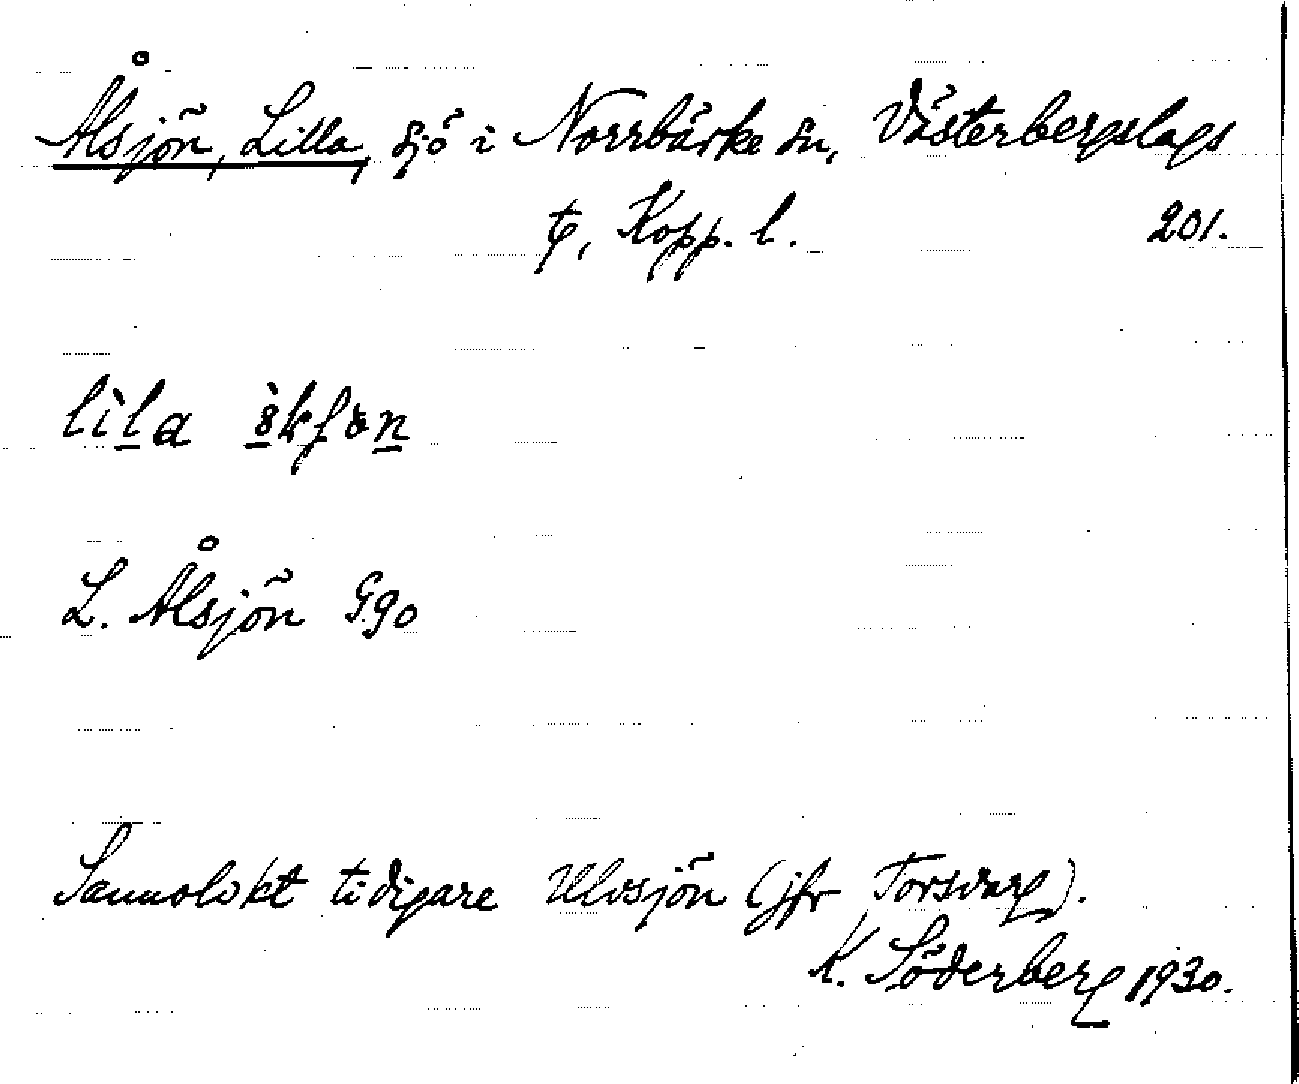 Ålsjön, Lilla, sjö i Norrbärke sn, Västerbergslags
tg, Kopp. l. 201.
L. Ålsjön G90
Sannolikt tidigare Ulvsjön (jfr Torsvarg).
K. Söderberg 1930.